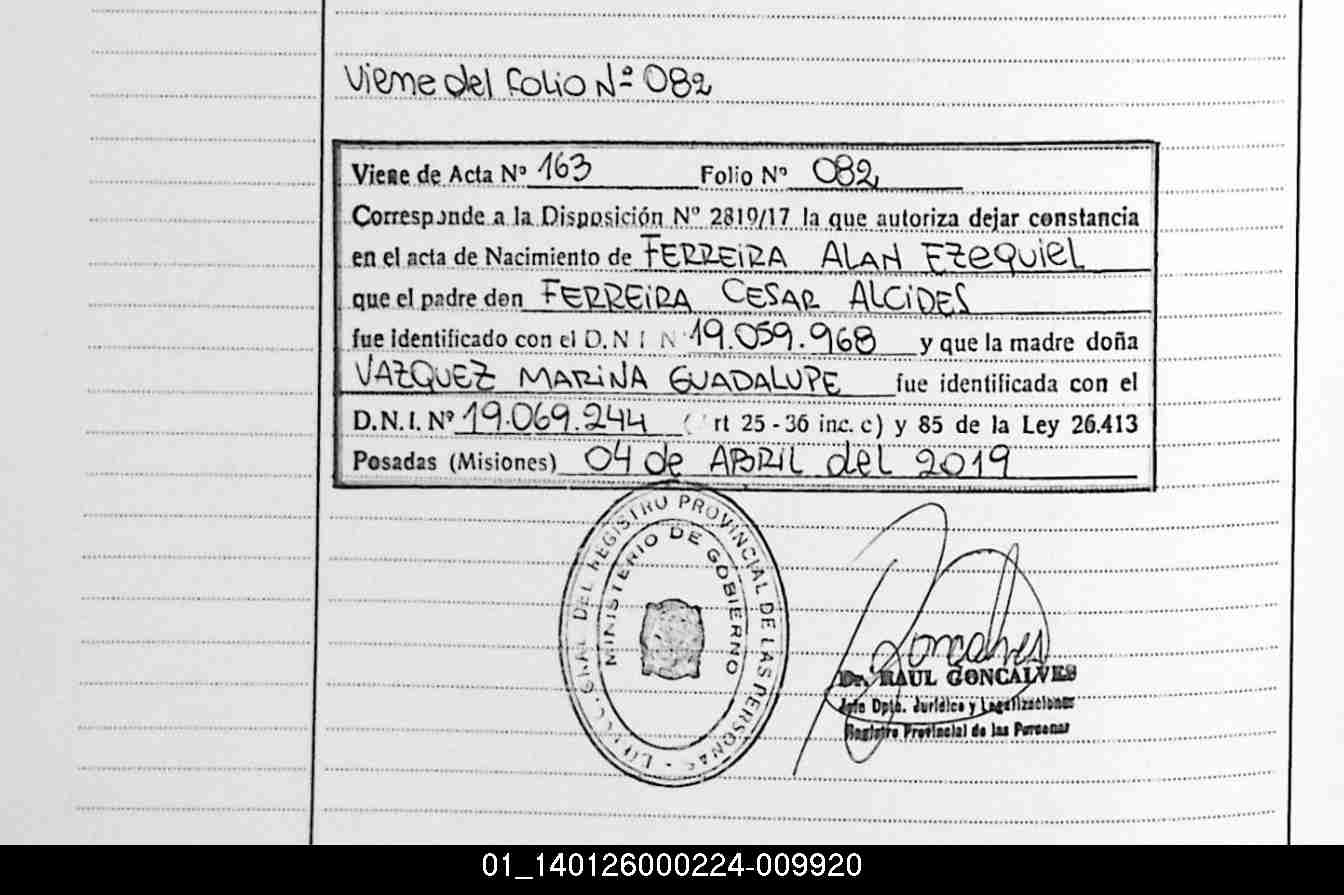 Viene del folio Nº 082
Viene de Acta Nº 163 Folio Nº 082
Corresponde a la Disposición Nº 2819/17 la que autoriza dejar constancia
en el acta de Nacimiento de FERREIRA ALAN EZEQUIEL
que el padre don FERREIRA CESAR ALCIDES
fue identificado con el D.N.I N 19.059.968 y que la madre doña
VAZQUEZ MARINA GUADALUPE fue identificada con el
D.N.I. Nº 19.069.244 ( rt 25 - 36 inc. c) y 85 de la Ley 26.413
Posadas (Misiones) 04 de ABRIL del 2019
GRAL DEL REGISTRO PROVINCIAL DE LAS PERSONAS
MINISTERIO DE GOBIERNO
Goncalves
Dr. RAUL GONCALVES
Jefe Dpto. Jurídico y Legalizaciones
Registro Provincial de las Personas
01_140126000224-009920